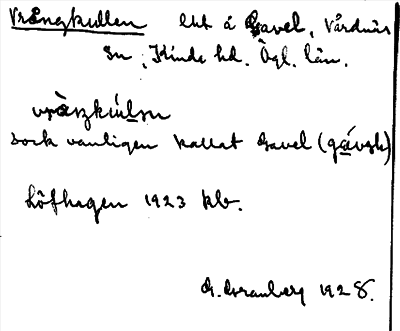 Vrångkullen lht å Gavel, Vårdnäs
sn, Kinda hd. Ögl. län.
dock vanligen kallat Gavel
Löfhagen 1923 kb.
G. Granberg 1928.